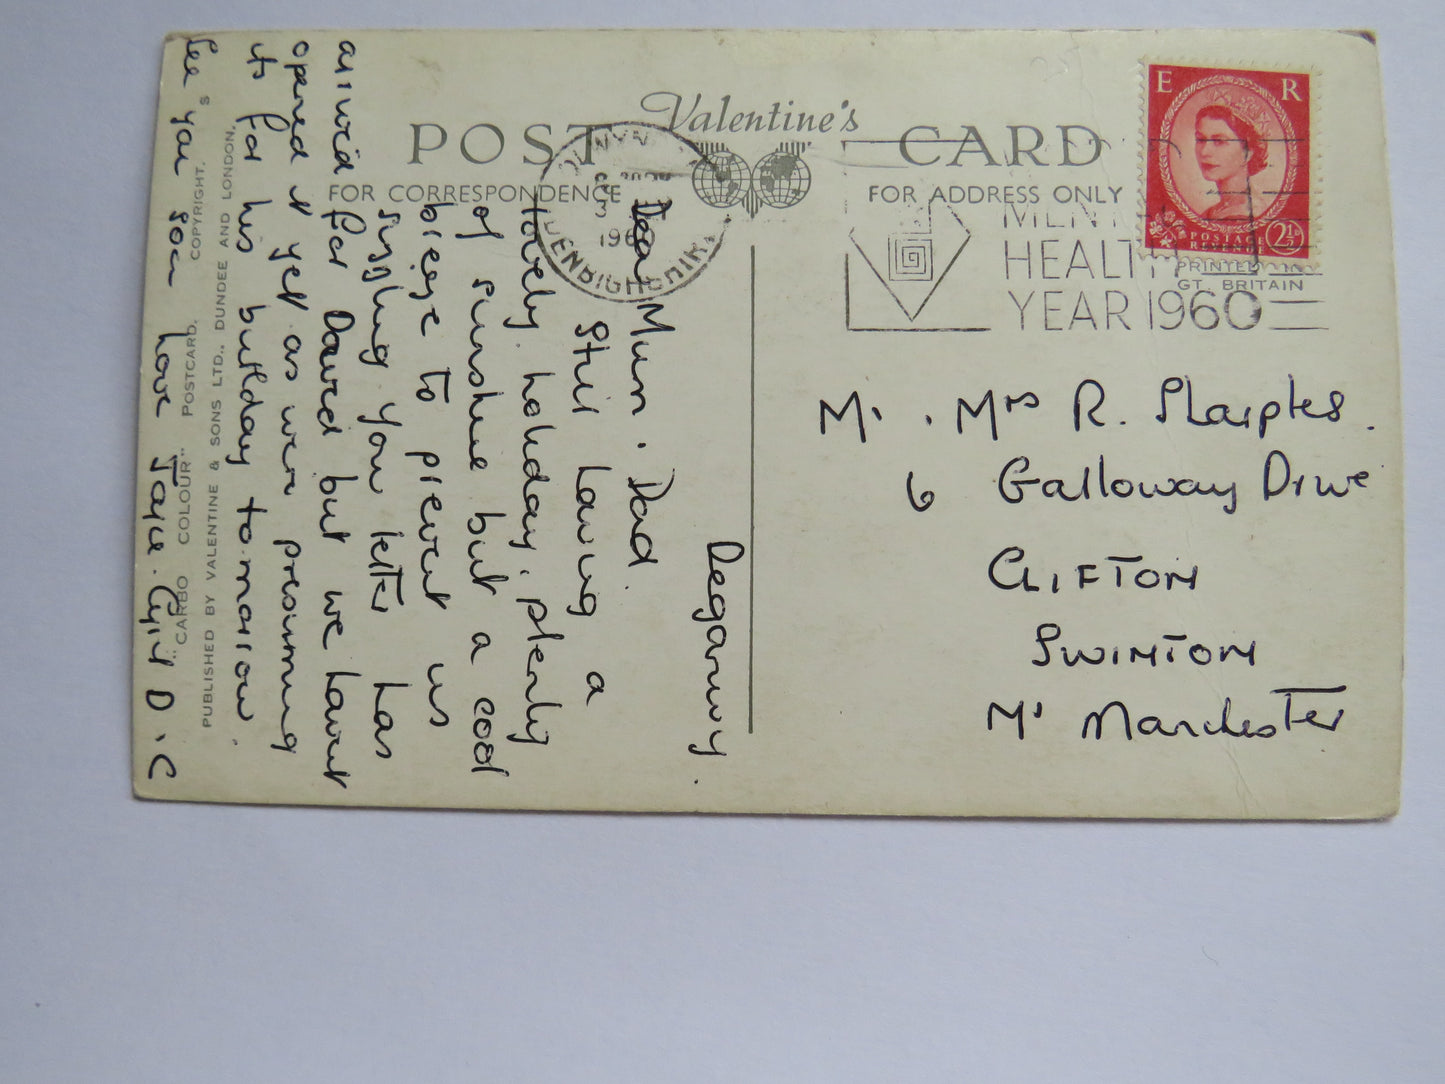 Valentine's
POST CARD
FOR CORRESPONDENCE
FOR ADDRESS ONLY
E R
POSTAGE
REVENUE
2½
PRINTED IN
GT. BRITAIN
DENBIGHSHIRE
MENTAL
HEALTH
YEAR 1960
Deganwy.
Dear Mum. Dad.
Still having a
lovely holiday, plenty
of sunshine but a cool
breeze to prevent us
sizzling you letter has
arrived for David but we havent
opened it yet as were presuming
its for his birthday to-morrow.
See you soon love Joyce. Cyril D. C
Mr. Mrs R. Sharples.
6 Galloway Drive
CLIFTON
SWINTON
Nr Manchester
"CARBO COLOUR" POSTCARD. COPYRIGHT. S
PUBLISHED BY VALENTINE & SONS LTD., DUNDEE AND LONDON.